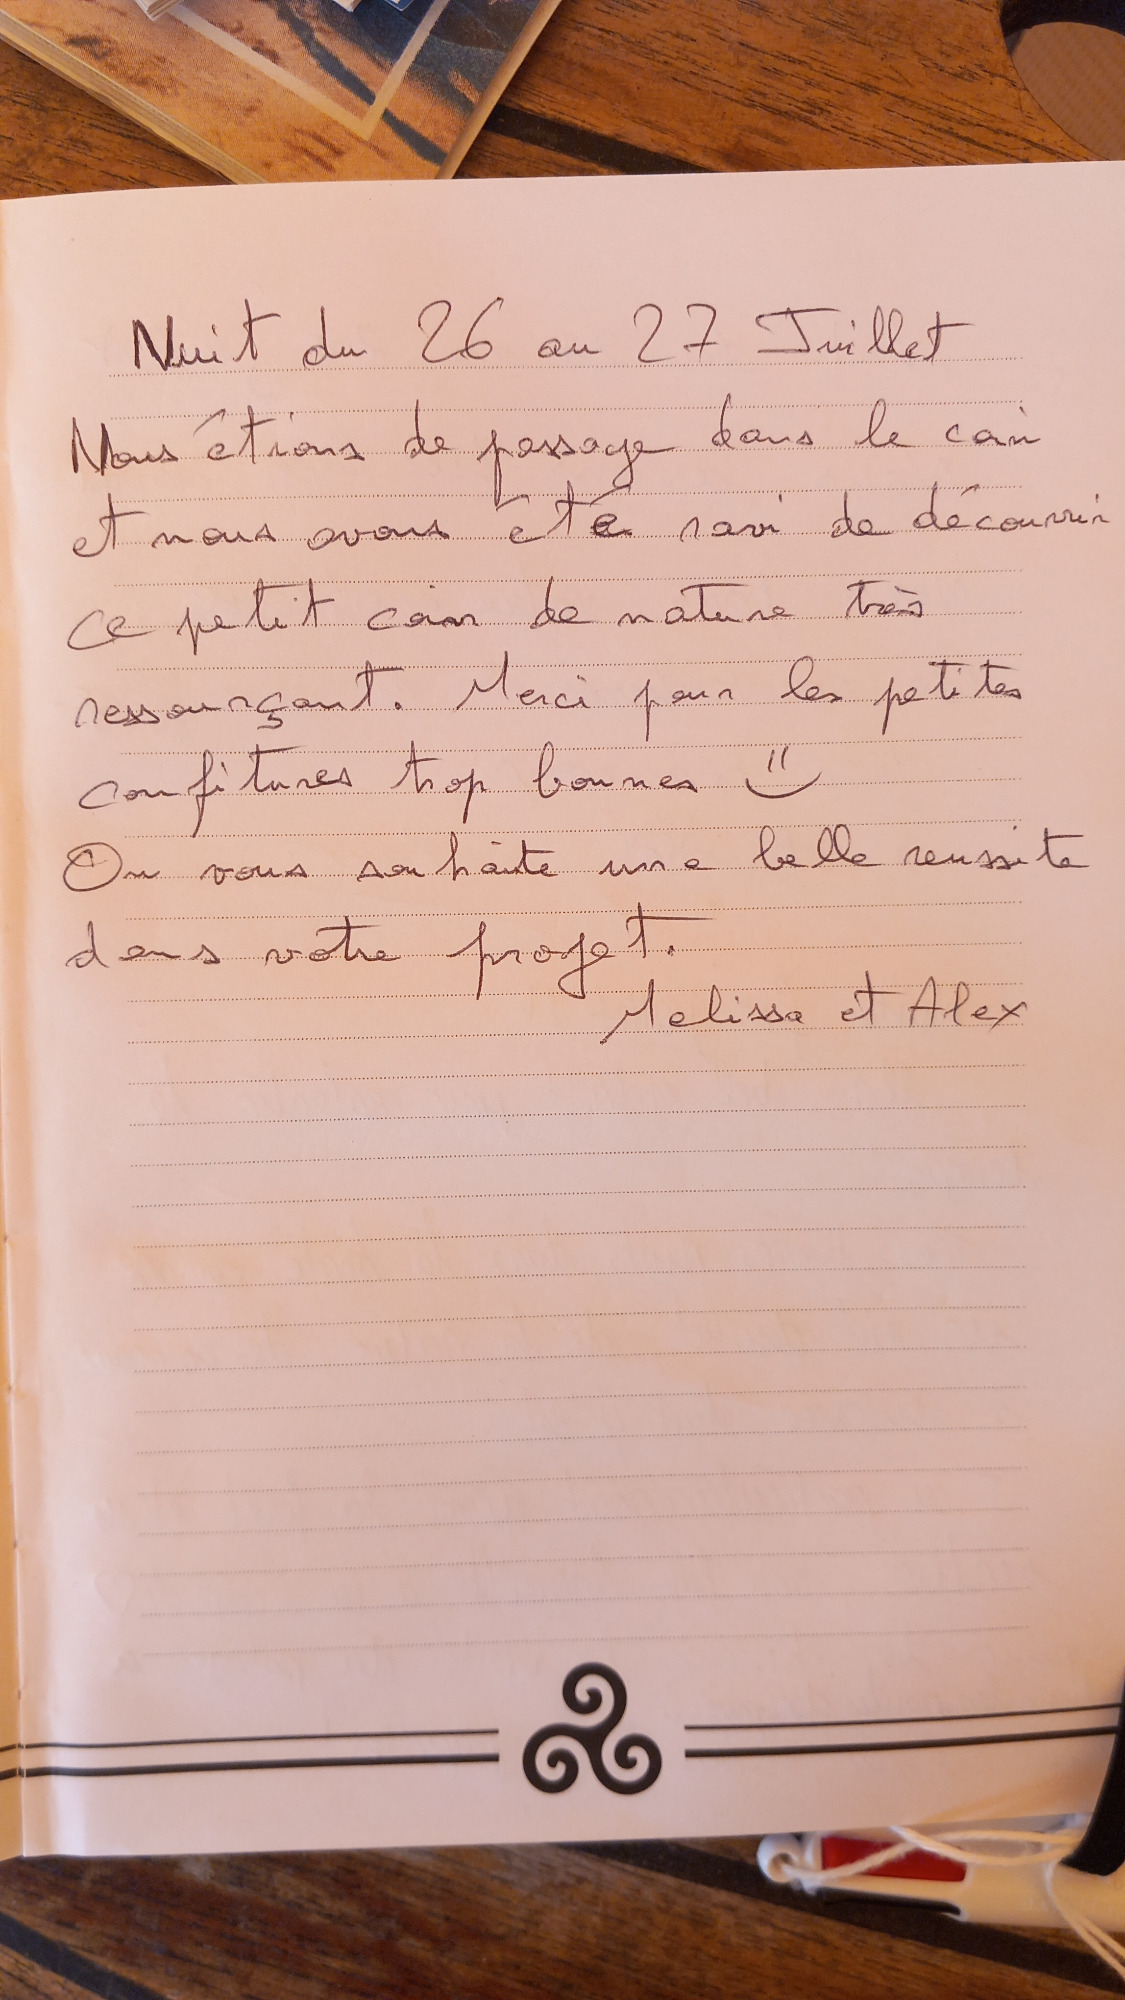 Nuit du 26 au 27 Juillet
Nous étions de passage dans le coin
et nous avons été ravi de découvrir
ce petit coin de nature très
ressourçant. Merci pour les petites
confitures trop bonnes
On vous souhaite une belle reussite
dans votre projet.
Melissa et Alex